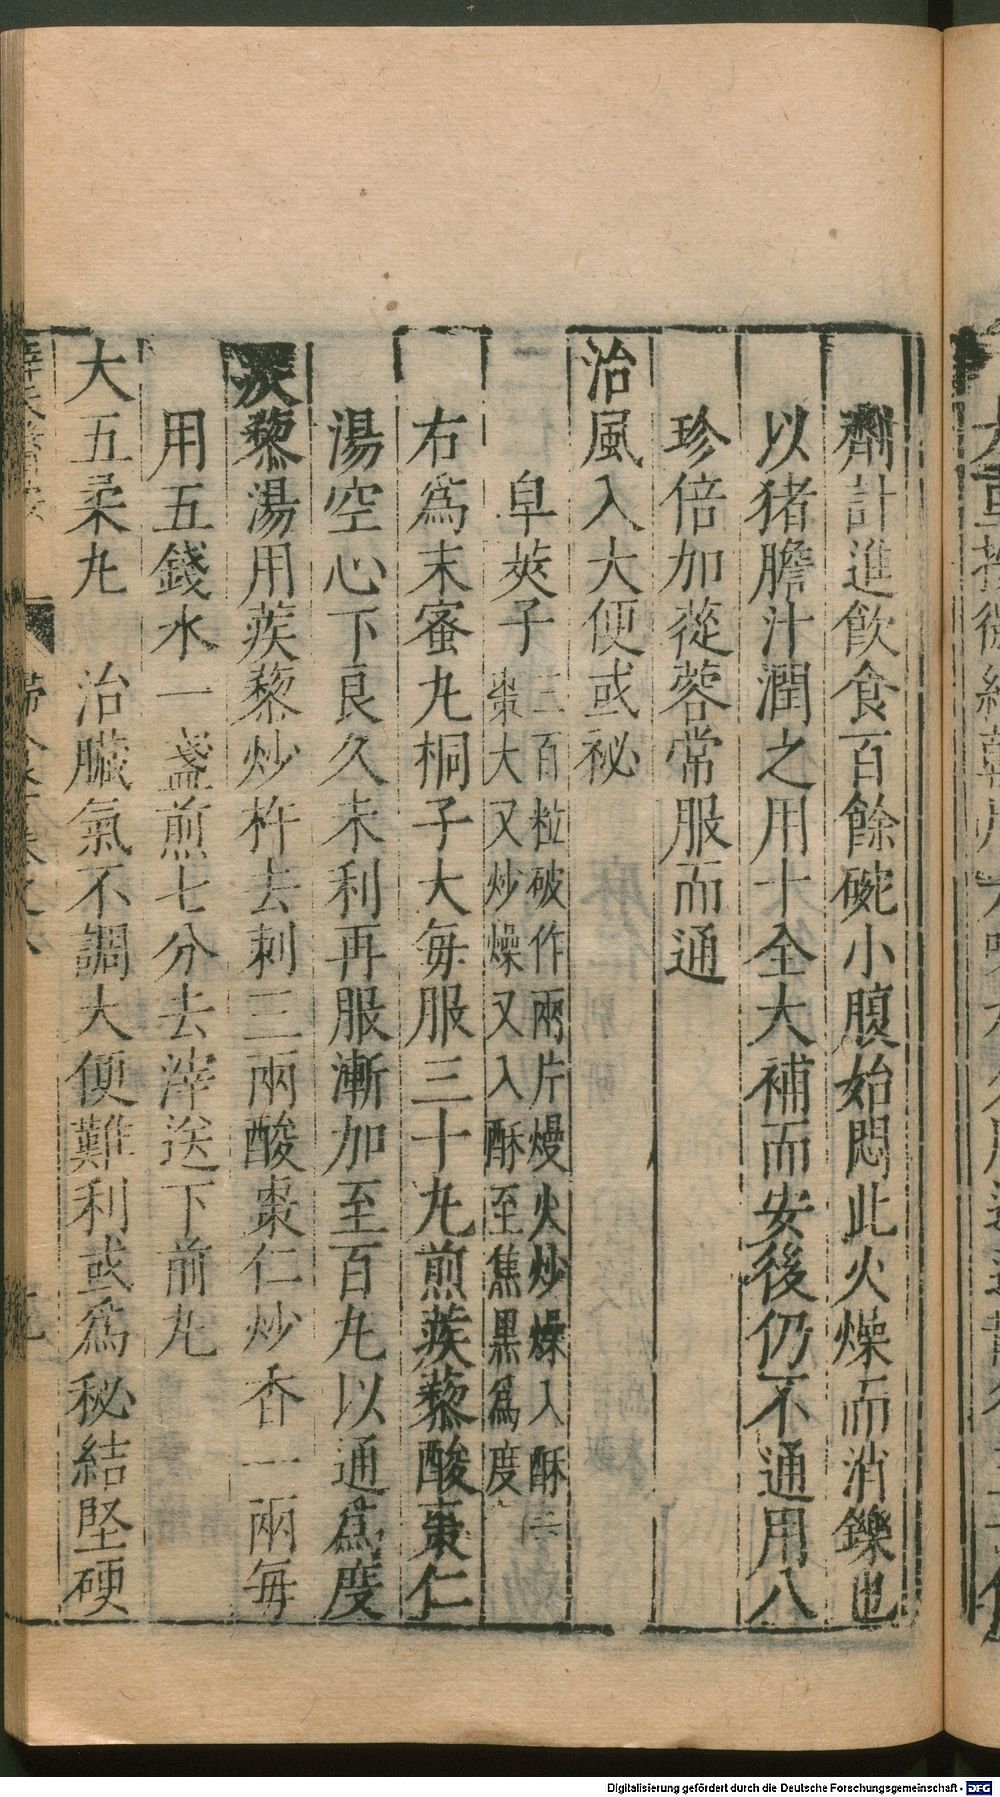 劑計進飲食百餘碗小腹始悶此火燥而消鑠也
以猪膽汁潤之用十全大補而安後仍不通用八
珍倍加蓯蓉常服而通
治風入大便或秘
皁莢子三百粒破作兩片熳火炒燥入酥
棗大又炒燥又入酥至焦黒爲度
右爲末蜜九桐子大毎服三十九煎蒺藜酸棗仁
湯空心下良久未利再服漸加至百九以通爲度
蒺藜湯用蒺藜炒杵去刺三兩酸棗仁炒香一兩毎
用五錢水一盞煎七分去滓送下前九
大五柔九 治臟氣不調大便難利或爲秘結堅硬
Digitalisierung gefördert durch die Deutsche Forschungsgemeinschaft - DFG